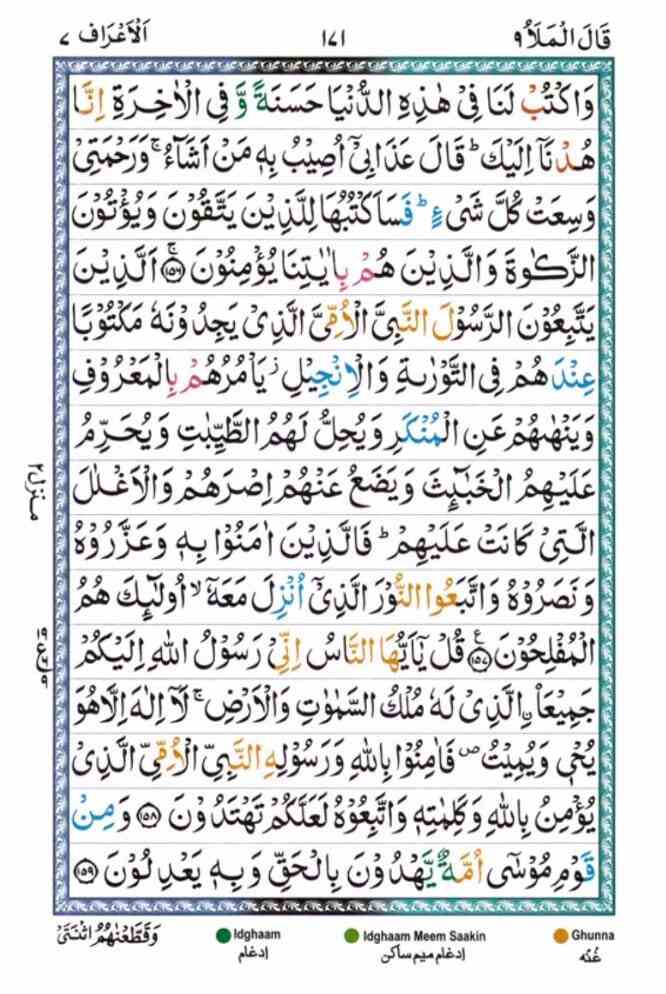 قَالَ الْمَلَاُ ٩ ١٧١ اَلْاَعْرَاف ٧
وَاكْتُبْ لَنَا فِيْ هٰذِهِ الدُّنْيَا حَسَنَةً وَّفِي الْاٰخِرَةِ اِنَّا
هُدْنَاۤ اِلَيْكَ ؕ قَالَ عَذَابِيْۤ اُصِيْبُ بِهٖ مَنْ اَشَآءُ ۚ وَرَحْمَتِيْ
وَسِعَتْ كُلَّ شَيْءٍ ؕ فَسَاَكْتُبُهَا لِلَّذِيْنَ يَتَّقُوْنَ وَيُؤْتُوْنَ
الزَّكٰوةَ وَالَّذِيْنَ هُمْ بِاٰيٰتِنَا يُؤْمِنُوْنَ ۚ ﴿١٥٦﴾ اَلَّذِيْنَ
يَتَّبِعُوْنَ الرَّسُوْلَ النَّبِيَّ الْاُمِّيَّ الَّذِيْ يَجِدُوْنَهٗ مَكْتُوْبًا
عِنْدَهُمْ فِي التَّوْرٰىةِ وَالْاِنْجِيْلِ ؗ يَاْمُرُهُمْ بِالْمَعْرُوْفِ
وَيَنْهٰىهُمْ عَنِ الْمُنْكَرِ وَيُحِلُّ لَهُمُ الطَّيِّبٰتِ وَيُحَرِّمُ
عَلَيْهِمُ الْخَبٰٓئِثَ وَيَضَعُ عَنْهُمْ اِصْرَهُمْ وَالْاَغْلٰلَ
الَّتِيْ كَانَتْ عَلَيْهِمْ ؕ فَالَّذِيْنَ اٰمَنُوْا بِهٖ وَعَزَّرُوْهُ
وَنَصَرُوْهُ وَاتَّبَعُوا النُّوْرَ الَّذِيْۤ اُنْزِلَ مَعَهٗۤ ۙ اُولٰٓئِكَ هُمُ
الْمُفْلِحُوْنَ ﴿١٥٧﴾ ع قُلْ يٰۤاَيُّهَا النَّاسُ اِنِّيْ رَسُوْلُ اللهِ اِلَيْكُمْ
جَمِيْعَا ۨالَّذِيْ لَهٗ مُلْكُ السَّمٰوٰتِ وَالْاَرْضِ ۚ لَاۤ اِلٰهَ اِلَّا هُوَ
يُحْيٖ وَيُمِيْتُ ۪ فَاٰمِنُوْا بِاللهِ وَرَسُوْلِهِ النَّبِيِّ الْاُمِّيِّ الَّذِيْ
يُؤْمِنُ بِاللهِ وَكَلِمٰتِهٖ وَاتَّبِعُوْهُ لَعَلَّكُمْ تَهْتَدُوْنَ ﴿١٥٨﴾ وَمِنْ
قَوْمِ مُوْسٰۤى اُمَّةٌ يَّهْدُوْنَ بِالْحَقِّ وَبِهٖ يَعْدِلُوْنَ ﴿١٥٩﴾
منزل ٢
وَقَطَّعْنٰهُمُ اثْنَتَيْ
Idghaam
ادغام
Idghaam Meem Saakin
ادغام میم ساکن
Ghunna
غنّہ